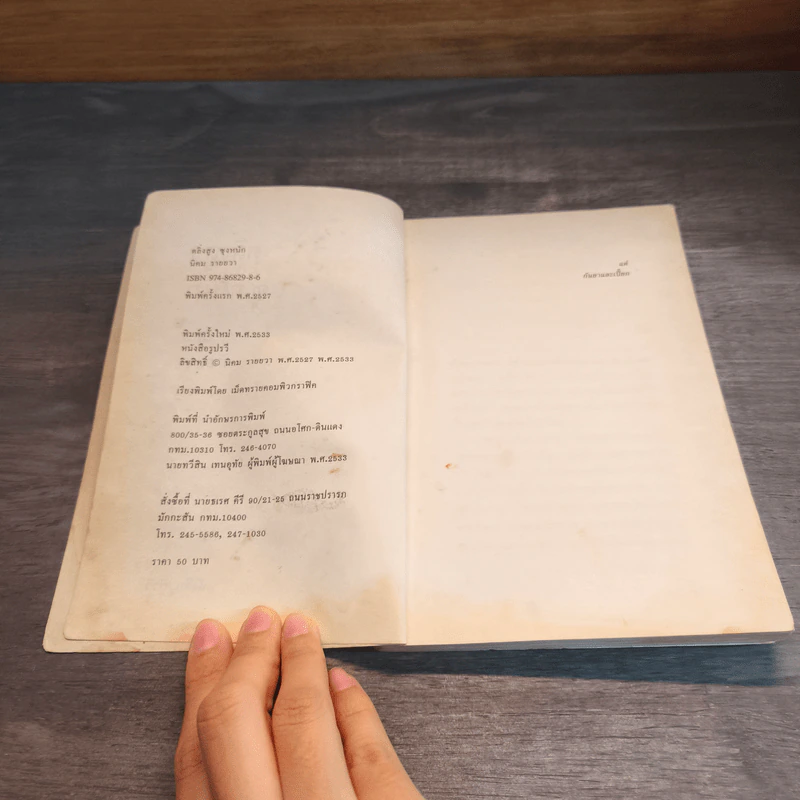 ตลิ่งสูง ซุงหนัก
นิคม รายยวา
ISBN 974-86829-8-6
พิมพ์ครั้งแรก พ.ศ.2527
พิมพ์ครั้งใหม่ พ.ศ.2533
หนังสือรูปรวี
ลิขสิทธิ์ © นิคม รายยวา พ.ศ.2527 พ.ศ.2533
เรียงพิมพ์โดย เม็ดทรายคอมพิวกราฟิค
พิมพ์ที่ นำอักษรการพิมพ์
800/35-36 ซอยตระกูลสุข ถนนอโศก-ดินแดง
กทม.10310 โทร. 246-4070
นายทวีสิน เทนอุทัย ผู้พิมพ์ผู้โฆษณา พ.ศ.2533
สั่งซื้อที่ นายธเรศ คีรี 90/21-25 ถนนราชปรารภ
มักกะสัน กทม.10400
โทร. 245-5586, 247-1030
ราคา 50 บาท
แด่
กันยาและเปี๊ยก